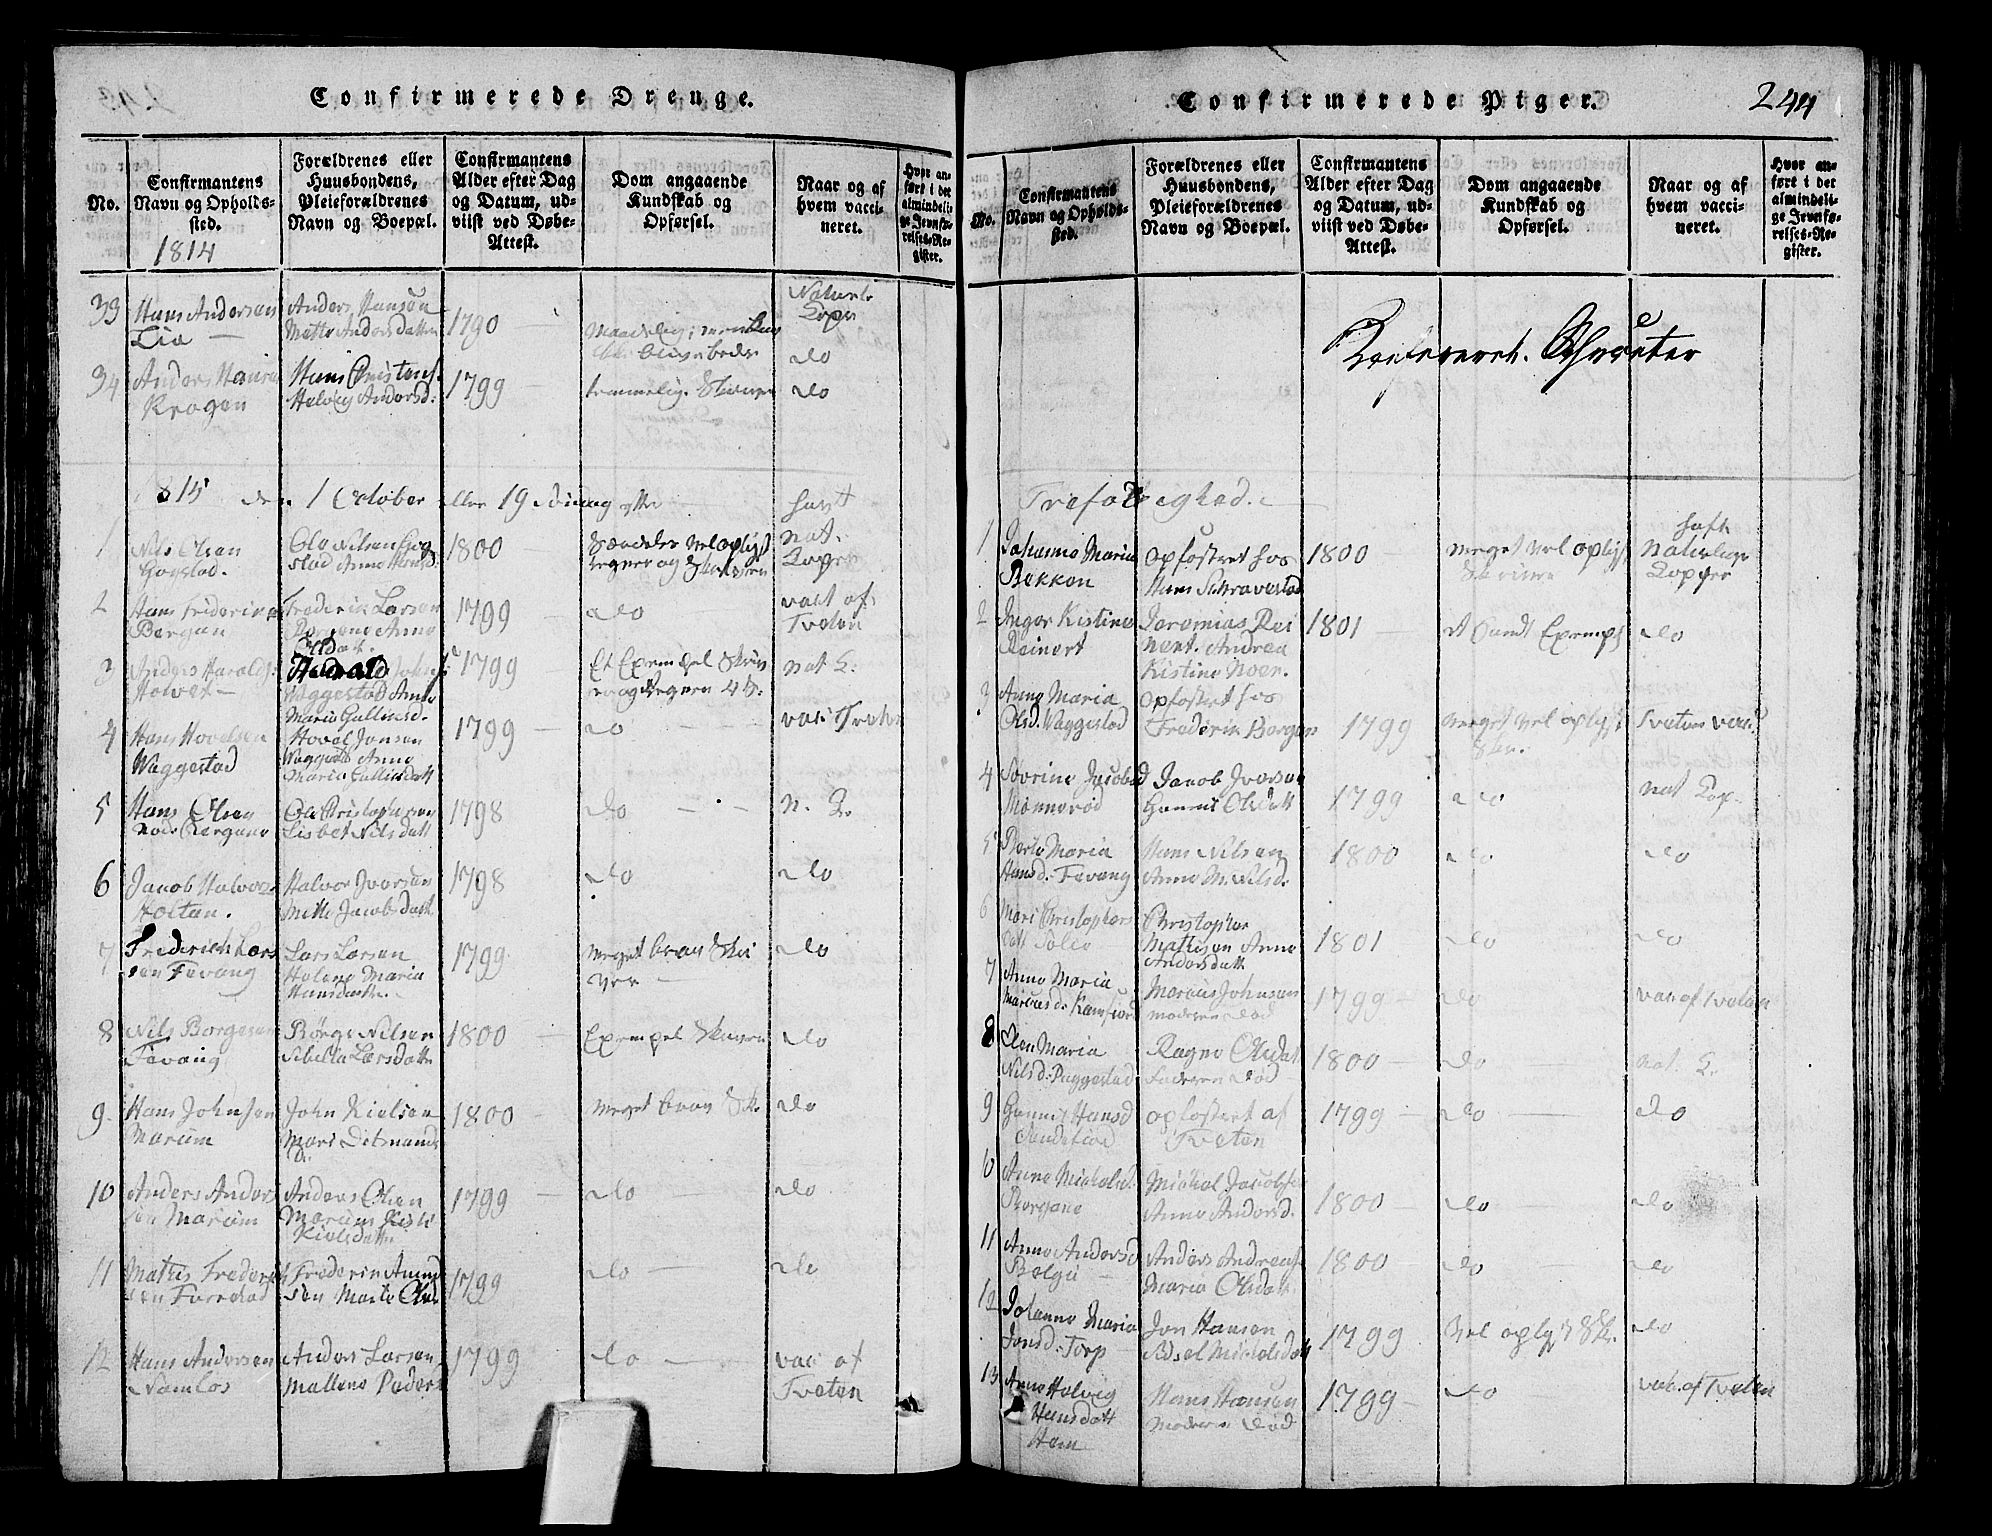 Confirmerede Drenge.
No.
Confirmantens
Navn og Opholds-
sted.
1814
Forældrenes eller
Huusbondens,
Pleieforældrenes
Navn og Boepæl.
Confirmantens
Alder efter Dag
og Datum, ud-
viist ved Døbe-
Attest.
Dom angaaende
Kundskab og
Opførsel.
Naar og af
hvem vacci-
neret.
Hvor an-
ført i det
almindeli-
ge Jevnfø-
relses-Re-
gister.
33 Hans Andersen
Lia —
Anders Hansen
Mette Andersdatter
1790
Naturl.
Koper
do
34 Anders Hansen
Krogen
Hans Cristens.
Helvig Andersd:
1799
temmelig. Skriver
do
1815 den 1 October eller 19 Sönndag
havt
1 Nils Olsen
Gogstad.
Ole Nilsen Gog
stad Anne Hansd
1800
Særdeles vel oplyst
regner og Skriver
nat.
Koper
2 Hans Friderik
Bergan
Frederik Larsen
Bergan Anne
Olsdat.
1799
do
vact af
Tveten
3 Anders Haralds:
Howet —
Waggestad Anne
Maria Gullinsd.
1799
Et Exempel Skri
ver og Regner
nat K:
4 Hans Hovelsen
Waggestad
Hovel Jansen
Waggestad Anne
Maria Gullinsdatt
1799
do
vac Tveten
5 Hans Olsen
Bergane
Ole Christophersen
Lisbet Nilsdatt
1798
do
n. K.
6 Jacob Halvors.
Holtan.
Halvor Ivarsen
Mette Jacobsdatt
1798
do
do
7 Frederich Lars
sen Fevang
Lars Larsen
Helene Maria
Hansdatte.
1799
meget brav Skri
ver —
do
8 Nils Borgesen
Fevang
Børge Nilsen
Sibilla Larsdatte
1800
Exempel Skriver
do
9. Hans Johnsen
Marum
John Nielsen
Mari Ditmands
D.
1800
meget brav Sk.
do
10 Anders Anders
sen Marum
Anders Olsen
Marum Kisti
Nielsdatte
1799
do
do
11 Mathis Frederik
sen
Frederik Amund
sen Marte Olsd
1799
do
do
12 Hans Andersen
Namlos
Anders Larsen
Mallene Peders
1799
do
vac af
Tveten
Confirmerede Piger.
244
No.
Confirmantens
Navn og Opholds-
sted.
Forældrenes eller
Huusbondens,
Pleieforældrenes
Navn og Boepæl.
Confirmantens
Alder efter Dag
og Datum, ud-
viist ved Døbe-
Attest.
Dom angaaende
Kundskab og
Opførsel.
Naar og af
hvem vacci-
neret.
Hvor an-
ført i det
almindeli-
ge Jevnfø-
relses-Re-
gister.
Trefoldighed.
1 Johanne Maria
Bekkon
opfostret hos
Hans Skravestad
1800
meget vel oplyst
Skriver
haft
Naturlige
Kopper
2 Inger Kistine
Reinert
Jeremias Rei
nert. Andrea
Kistine Noer.
1801
et Sandt Exempel
do
3 Anne Maria
Olsd. Waggestad
opfostret hos
Frederik Bergan
1799
meget vel oplyst
Skr.
Tveten vacc
4 Severine Jacobsd
Mønnerød
Jacob Ivarsen
Gunnil Olsdatt
1799
do
nat Kop.
5 Berte Maria
Hansd: Fevang
Hans Nilsen
Anne M. Nilsd.
1800
do
do
6 Mari Christophers
datt
Christopher
Mathisen Anne
Andersdatt
1801
do
do
7 Anne Maria
Marcusd. Kamfiord
Marcus Johnsen
moderen død
1799
do
vac af Tveten
8 Elen Maria
Nilsd. Puggestad
Ragne Olsdat
Faderen død
1800
do
nat. K.
9 Gunnil Hansd
Sandefiord
opfostret af
Tveten
1799
do
do
10 Anne Mickelsd.
Bergane
Mickel Jacobsen
Anne Andersd.
1800
do
do
11 Anne Andersd
Bolgu
Anders Andreas
Maria Olsdatt
1800
do
do
12 Johanne Maria
Jonsd: Torp
Jon Hansen
Adsel Mickelsdatt
1799
Vel oplyst Skr.
do
13 Anne Helvig
Hansdatt
Hem
Hans Hansen
Moderen død
1799
do
vac. af Tveten